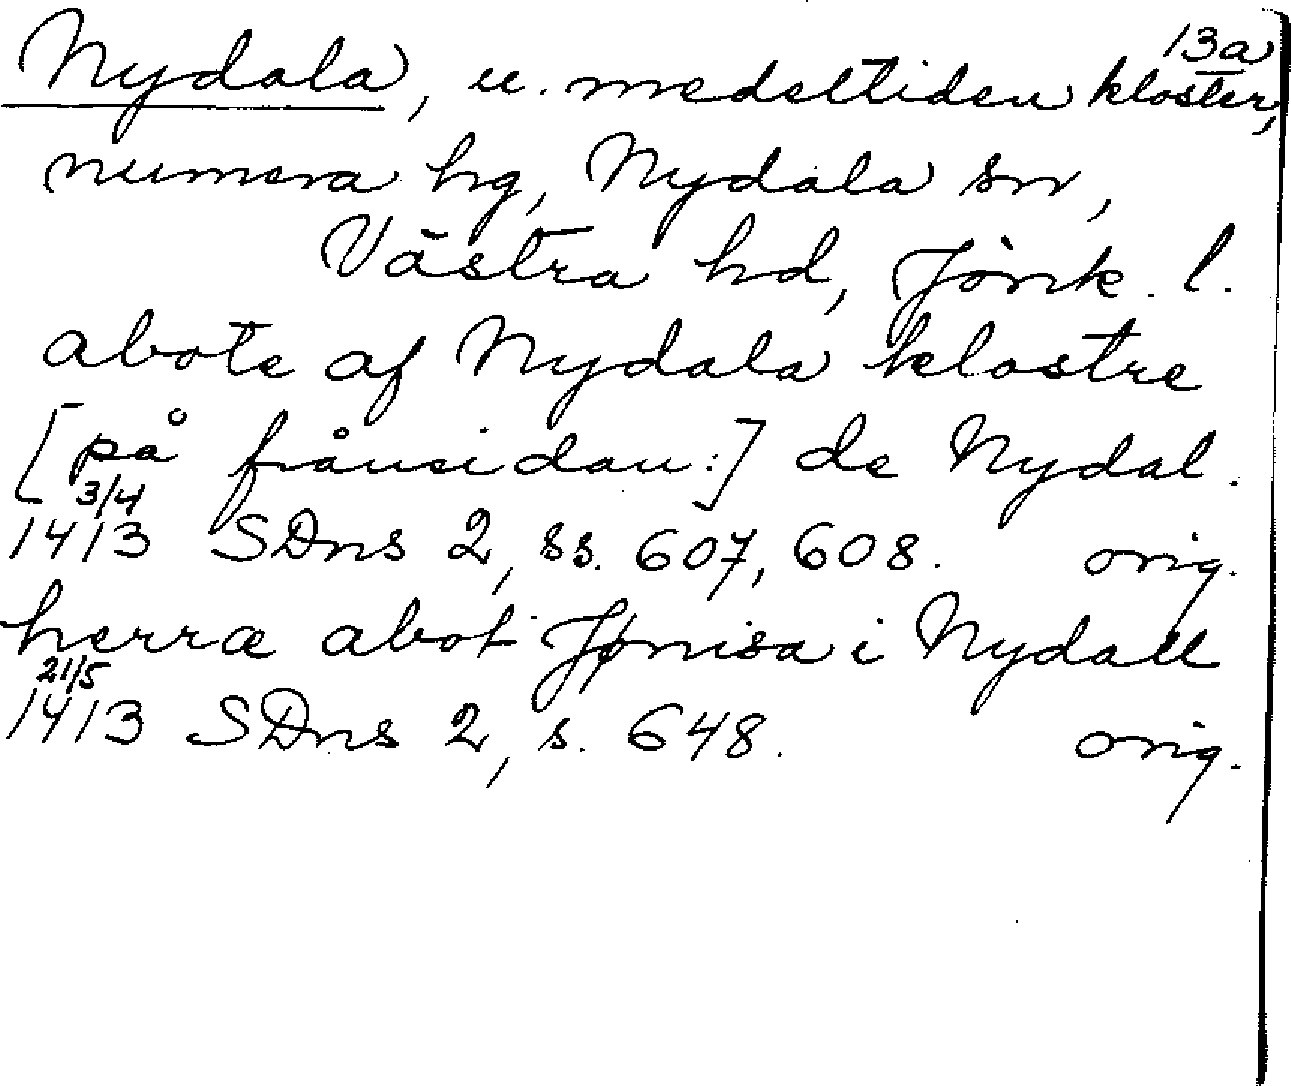 13a
Nydala, u. medeltiden kloster,
numera hg, Nydala sn,
Västra hd, Jönk. l.
abote af Nydala klostre
[på frånsidan:] de Nydal.
3/4
1413 SDns 2, ss. 607, 608. orig.
herræ abot Jønisa i Nydall
21/5
1413 SDns 2, s. 648. orig.